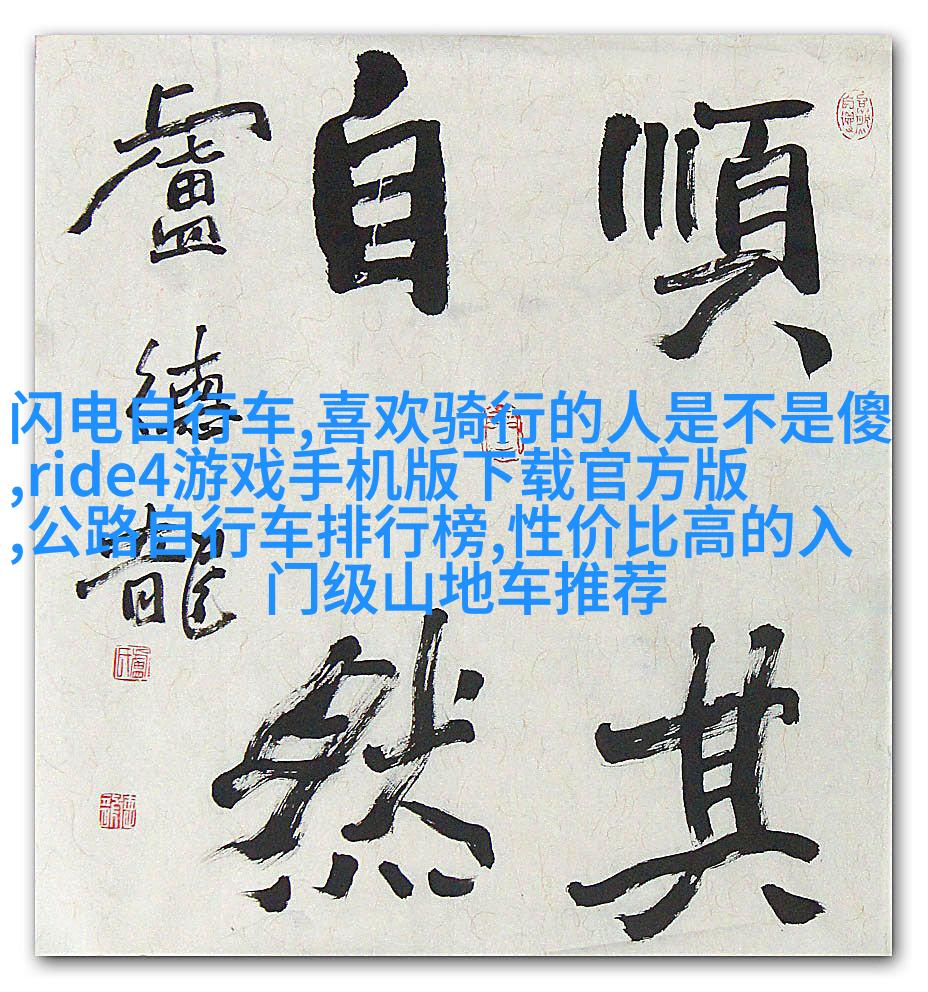 順其
自然
盧德龍
闪电自行车,喜欢骑行的人是不是傻
,ride4游戏手机版下载官方版
,公路自行车排行榜,性价比高的入
门级山地车推荐